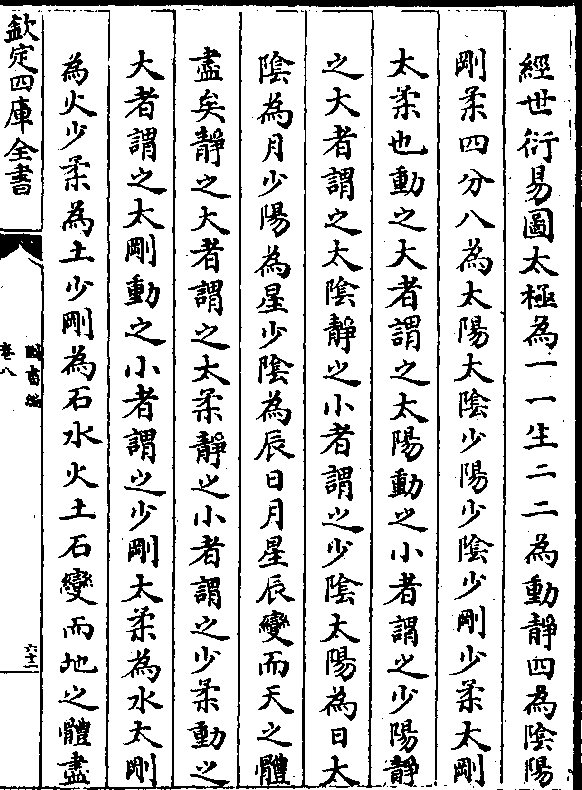 經世衍易圖太極為一一生二二為動靜四為陰陽
剛柔四分八為太陽太陰少陽少陰少剛少柔太剛
太柔也動之大者謂之太陽動之小者謂之少陽靜
之大者謂之太陰靜之小者謂之少陰太陽為日太
陰為月少陽為星少陰為辰日月星辰變而天之體
盡矣靜之大者謂之太柔靜之小者謂之少柔動之
大者謂之太剛動之小者謂之少剛太柔為水太剛
為火少柔為土少剛為石水火土石變而地之體盡
欽定四庫全書
卷八